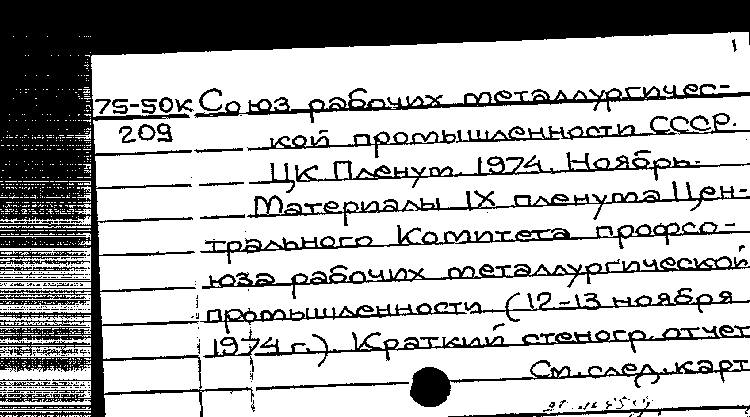 1
75-50к Союз рабочих металлургичес-
209 кой промышленности СССР.
ЦК Пленум. 1974. Ноябрь.
Материалы IX пленума Цен-
трального Комитета профсо-
юза рабочих металлургической
промышленности (12-13 ноября
1974 г.). Краткий стеногр. отчет
См. след. карт